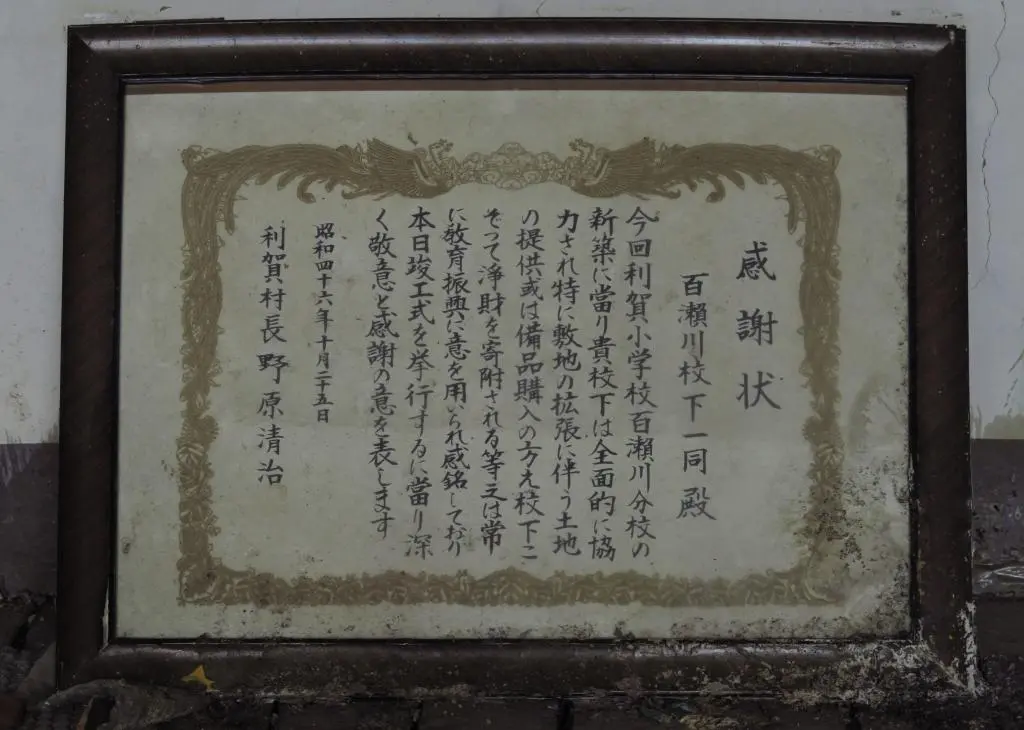 感謝状
百瀬川校下一同殿
今回利賀小学校百瀬川分校の
新築に當り貴校下は全面的に協
力され特に敷地の拡張に伴う土地
の提供或は備品購入の方え校下こ
そって浄財を寄附される等又は常
に教育振興に意を用いられ感銘しており
本日竣工式を挙行するに當り深
く敬意と感謝の意を表します
昭和四十六年十月二十五日
利賀村長 野原清治